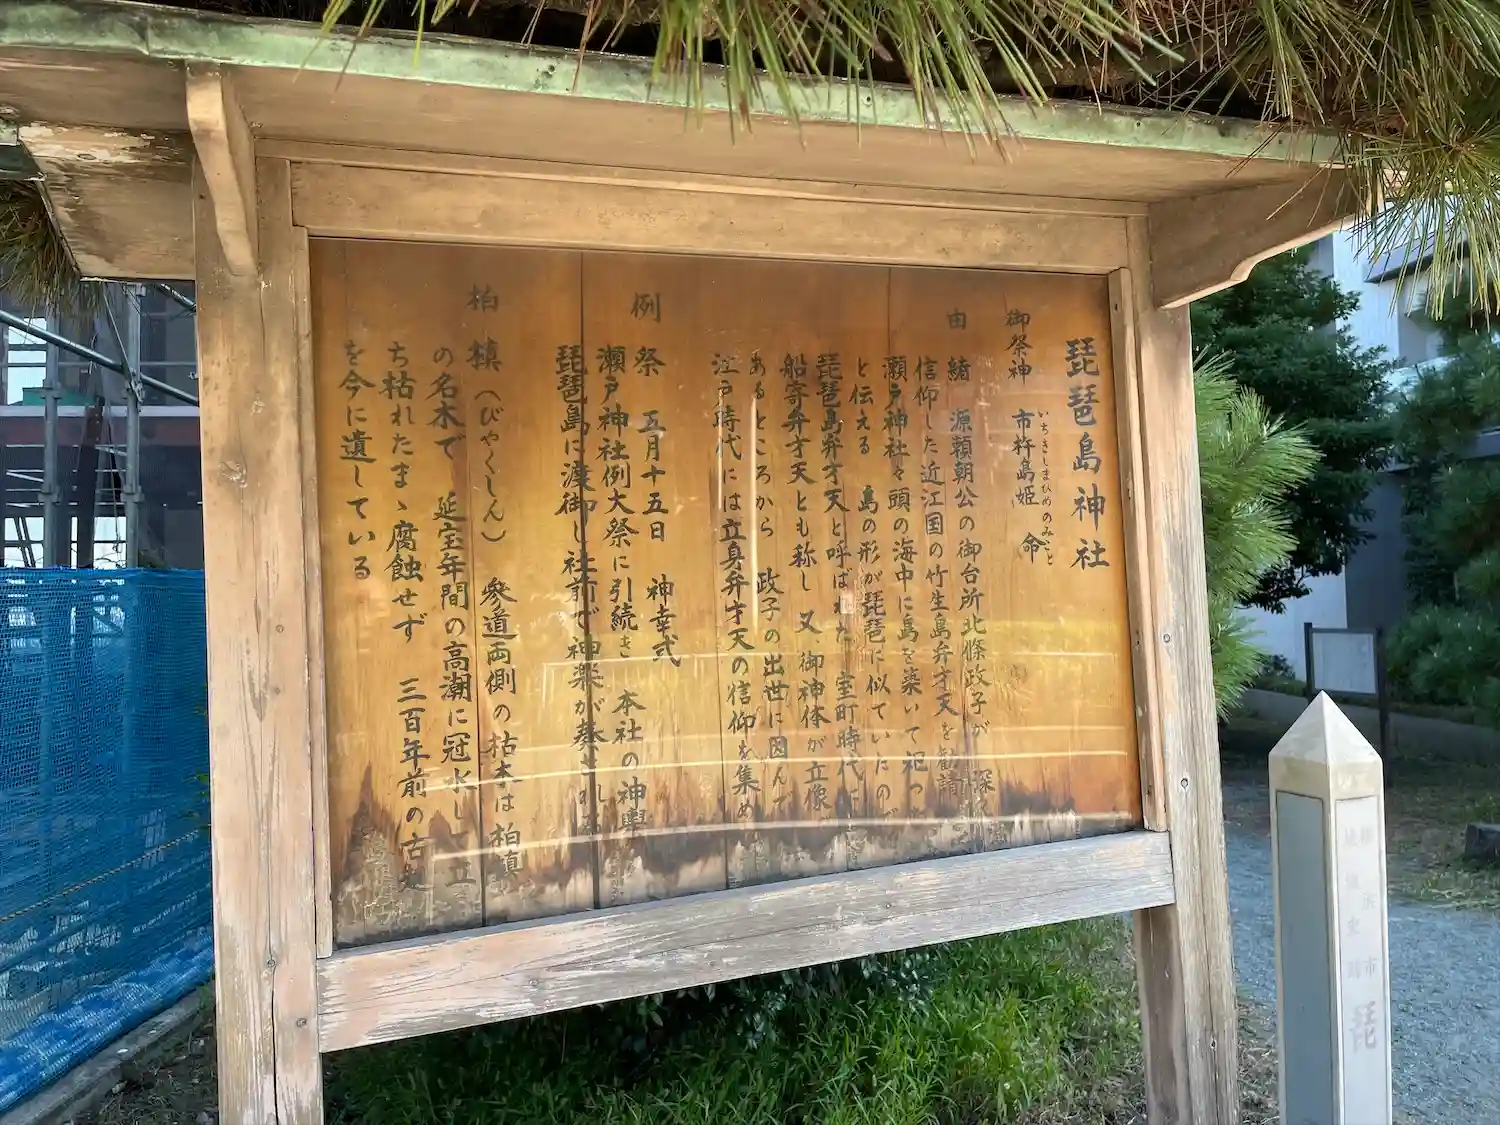 琵琶島神社
御祭神 市杵島姫命
いちきしまひめのみこと
由緒 源頼朝公の御台所北條政子が 深く
信仰した近江国の竹生島弁才天を勧請
瀬戸神社々頭の海中に島を築いて祀った
と伝える 島の形が琵琶に似ていたので
琵琶島弁才天と呼ばれた 室町時代に
船寄弁才天とも称し 又御神体が立像
あるところから 政子の出世に因んで
江戸時代には立身弁才天の信仰を集め
例祭 五月十五日 神幸式
瀬戸神社例大祭に引続き 本社の神輿
琵琶島に渡御し社前で神楽が奏される
柏槙(びやくしん) 参道両側の枯木は柏槙
の名木で 延宝年間の高潮に冠水し 立
ち枯れたまゝ腐蝕せず 三百年前の古
を今に遺している
横浜市
地域史跡
琵